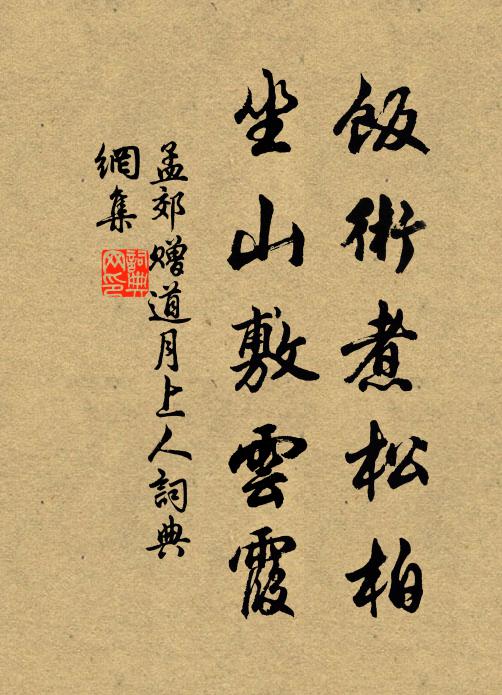 飯術煮松柏
坐山敷雲霞
孟郊贈道月上人詞典
網集
詞典
网印